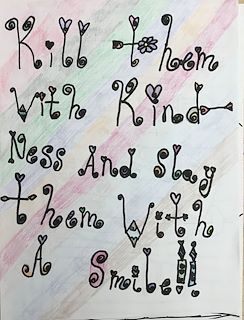 Kill them
With Kind-
Ness And Slay
them With
A Smile!!